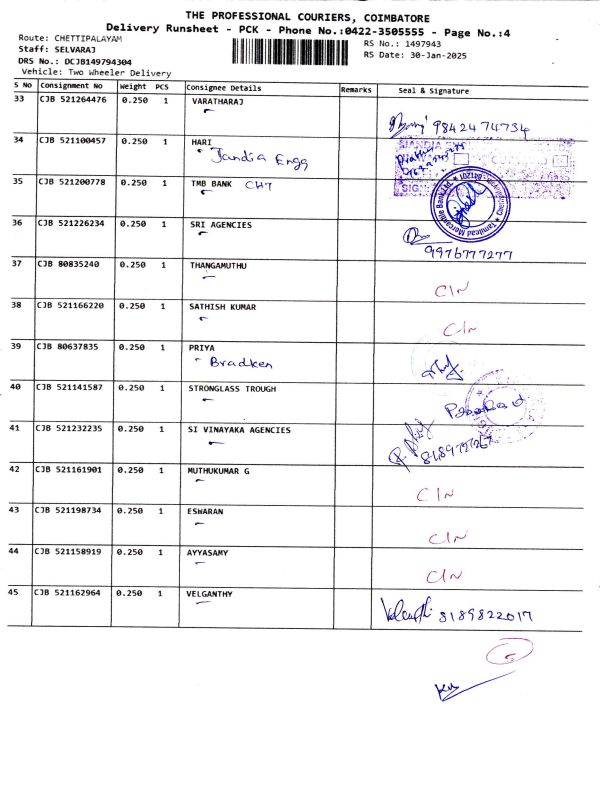 THE PROFESSIONAL COURIERS, COIMBATORE
Delivery Runsheet - PCK - Phone No.:0422-3505555 - Page No.:4
Route: CHETTIPALAYAM
RS No.: 1497943
Staff: SELVARAJ
RS Date: 30-Jan-2025
DRS No.: DCJB149794304
Vehicle: Two Wheeler Delivery
S No Consignment No Weight PCS Consignee Details Remarks Seal & Signature
33 CJB 521264476 0.250 1 VARATHARAJ
9842474734
34 CJB 521100457 0.250 1 HARI
Jandia Engg
35 CJB 521200778 0.250 1 TMB BANK CHT
36 CJB 521226234 0.250 1 SRI AGENCIES
9976777277
37 CJB 80835240 0.250 1 THANGAMUTHU
C/N
38 CJB 521166220 0.250 1 SATHISH KUMAR
C/N
39 CJB 80637835 0.250 1 PRIYA
Bradken
40 CJB 521141587 0.250 1 STRONGLASS TROUGH
41 CJB 521232235 0.250 1 SI VINAYAKA AGENCIES
42 CJB 521161901 0.250 1 MUTHUKUMAR G
C/N
43 CJB 521198734 0.250 1 ESWARAN
C/N
44 CJB 521158919 0.250 1 AYYASAMY
C/N
45 CJB 521162964 0.250 1 VELGANTHY
8189822017